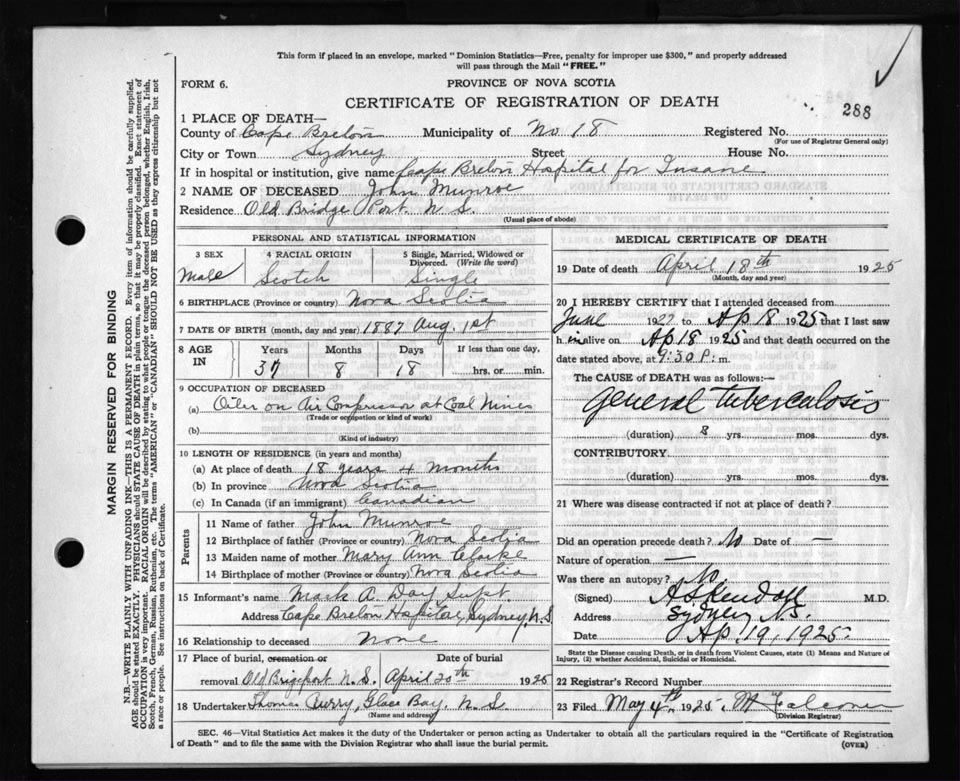 This form if placed in an envelope, marked "Dominion Statistics—Free, penalty for improper use $300," and properly addressed
will pass through the Mail "FREE."
FORM 6.
PROVINCE OF NOVA SCOTIA
CERTIFICATE OF REGISTRATION OF DEATH
288
1 PLACE OF DEATH—
County of Cape Breton Municipality of No 18 Registered No.
(For use of Registrar General only)
City or Town Sydney Street House No.
If in hospital or institution, give name Cape Breton Hospital for Insane
2 NAME OF DECEASED John Munroe
Residence Old Bridge Port N. S.
(Usual place of abode)
PERSONAL AND STATISTICAL INFORMATION
3 SEX 4 RACIAL ORIGIN 5 Single, Married, Widowed or
Divorced. (Write the word)
Male Scotch Single
6 BIRTHPLACE (Province or country) Nova Scotia
7 DATE OF BIRTH (month, day and year) 1887 Aug. 1st
8 AGE IN Years Months Days If less than one day,
37 8 18 hrs. or min.
9 OCCUPATION OF DECEASED
(a) Oiler on Air Compressor at Coal Mines
(Trade or occupation or kind of work)
(b)
(Kind of industry)
10 LENGTH OF RESIDENCE (in years and months)
(a) At place of death 18 years 4 months
(b) In province Nova Scotia
(c) In Canada (if an immigrant) Canadian
Parents
11 Name of father John Munroe
12 Birthplace of father (Province or country) Nova Scotia
13 Maiden name of mother Mary Ann Clarke
14 Birthplace of mother (Province or country) Nova Scotia
15 Informant's name Mark A. Day, Supt.
Address Cape Breton Hospital, Sydney, N. S.
16 Relationship to deceased None
17 Place of burial, cremation or Date of burial
removal Old Brigeport N. S. April 20th 1925
18 Undertaker Thomas Curry, Glace Bay, N. S.
(Name and address)
MEDICAL CERTIFICATE OF DEATH
19 Date of death April 18th 1925
(Month, day and year)
20 I HEREBY CERTIFY that I attended deceased from
June 1922 to Ap 18 1925 that I last saw
h im alive on Ap 18 1925 and that death occurred on the
date stated above, at 9:30 P. m.
The CAUSE OF DEATH was as follows:—
General tuberculosis
(duration) 8 yrs. mos. dys.
CONTRIBUTORY
(duration) yrs. mos. dys.
21 Where was disease contracted if not at place of death?
Did an operation precede death? No Date of —
Nature of operation —
Was there an autopsy? No
(Signed) A S Kendall M.D.
Address Sydney N.S.
Date Ap. 19, 1925
State the Disease causing Death, or in death from Violent Causes, state (1) Means and Nature of
Injury, (2) whether Accidental, Suicidal or Homicidal.
22 Registrar's Record Number
23 Filed May 4th 1925 M Falconer
(Division Registrar)
SEC. 46—Vital Statistics Act makes it the duty of the Undertaker or person acting as Undertaker to obtain all the particulars required in the "Certificate of Registration
of Death" and to file the same with the Division Registrar who shall issue the burial permit.
(OVER)
MARGIN RESERVED FOR BINDING
N.B.—WRITE PLAINLY WITH UNFADING INK—THIS IS A PERMANENT RECORD. Every item of information should be carefully supplied.
AGE should be stated EXACTLY. PHYSICIANS should STATE CAUSE OF DEATH in plain terms, so that it may be properly classified. Exact statement of
OCCUPATION is very important. RACIAL ORIGIN will be described by stating to what people or tongue the deceased person belonged, whether English, Irish,
Scotch, French, German, Russian, Ruthenian, etc. The terms "AMERICAN" or "CANADIAN" SHOULD NOT BE USED as they express citizenship but not
a race or people. See instructions on back of Certificate.